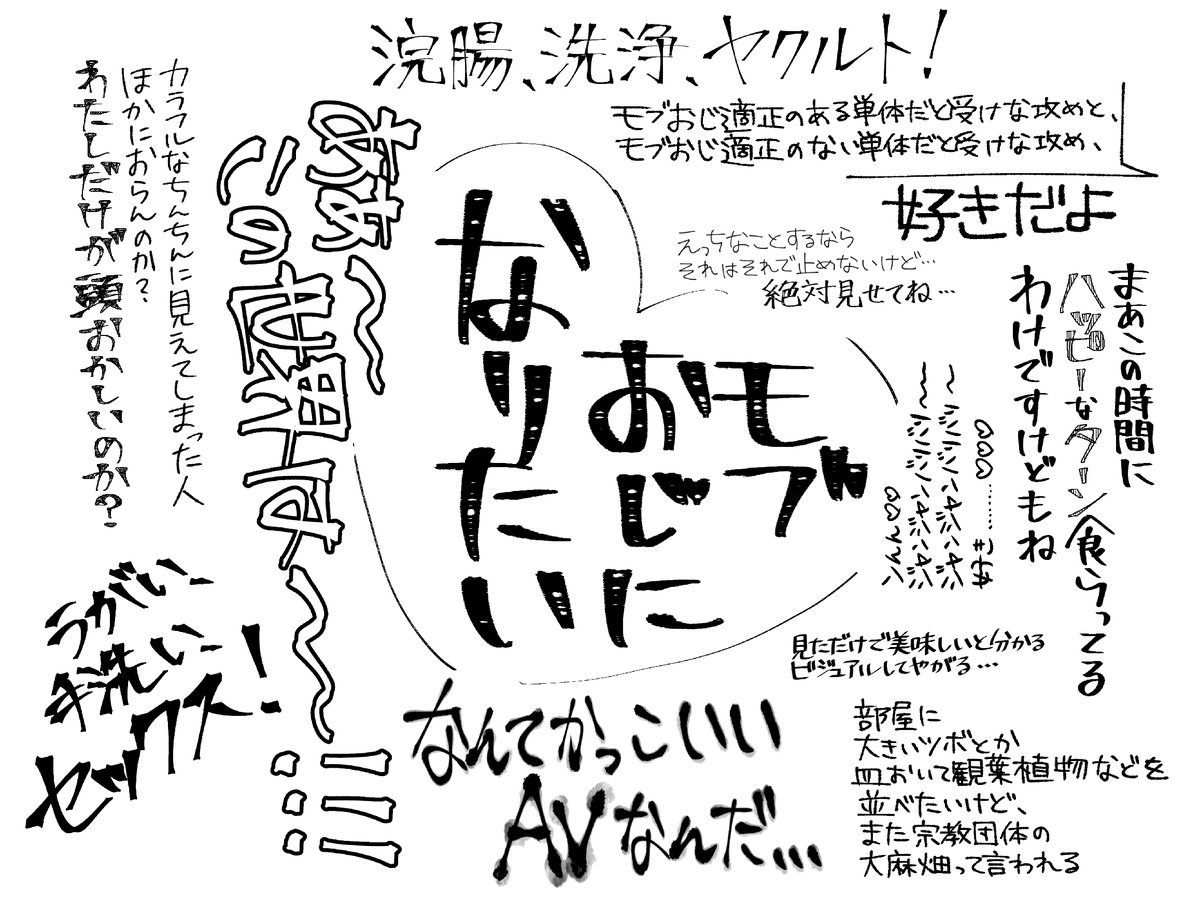 浣腸、洗浄、ヤクルト!
モブおじ適正のある単体だと受けな攻めと、
モブおじ適正のない単体だと受けな攻め、
好きだよ
カラフルなちんちんに見えてしまった人
ほかにおらんのか?
わたしだけが頭おかしいのか?
ああ〜
この世界は〜〜!!!
えっちなことするなら
それはそれで止めないけど…
絶対見せてね…
モブ
おじに
なりたい
まあこの時間に
ハッピーなターン食らってる
わけですけどもね
見ただけで美味しいと分かる
ビジュアルしてやがる…
うがい
手洗い
セックス!
なんてかっこいい
AVなんだ…
部屋に
大きいツボとか
皿おいて観葉植物などを
並べたいけど、
また宗教団体の
大麻畑って言われる